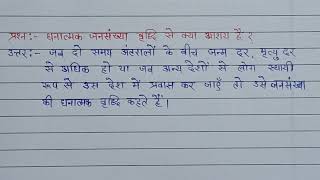 प्रश्न:- धनात्मक जनसंख्या वृद्धि से क्या आशय है ?
उत्तर:- जब दो समय अंतरालों के बीच जन्म दर, मृत्यु दर
से अधिक हो या जब अन्य देशों से लोग स्थायी
रूप से उस देश में प्रवास कर जाएँ तो उसे जनसंख्या
की धनात्मक वृद्धि कहते हैं।